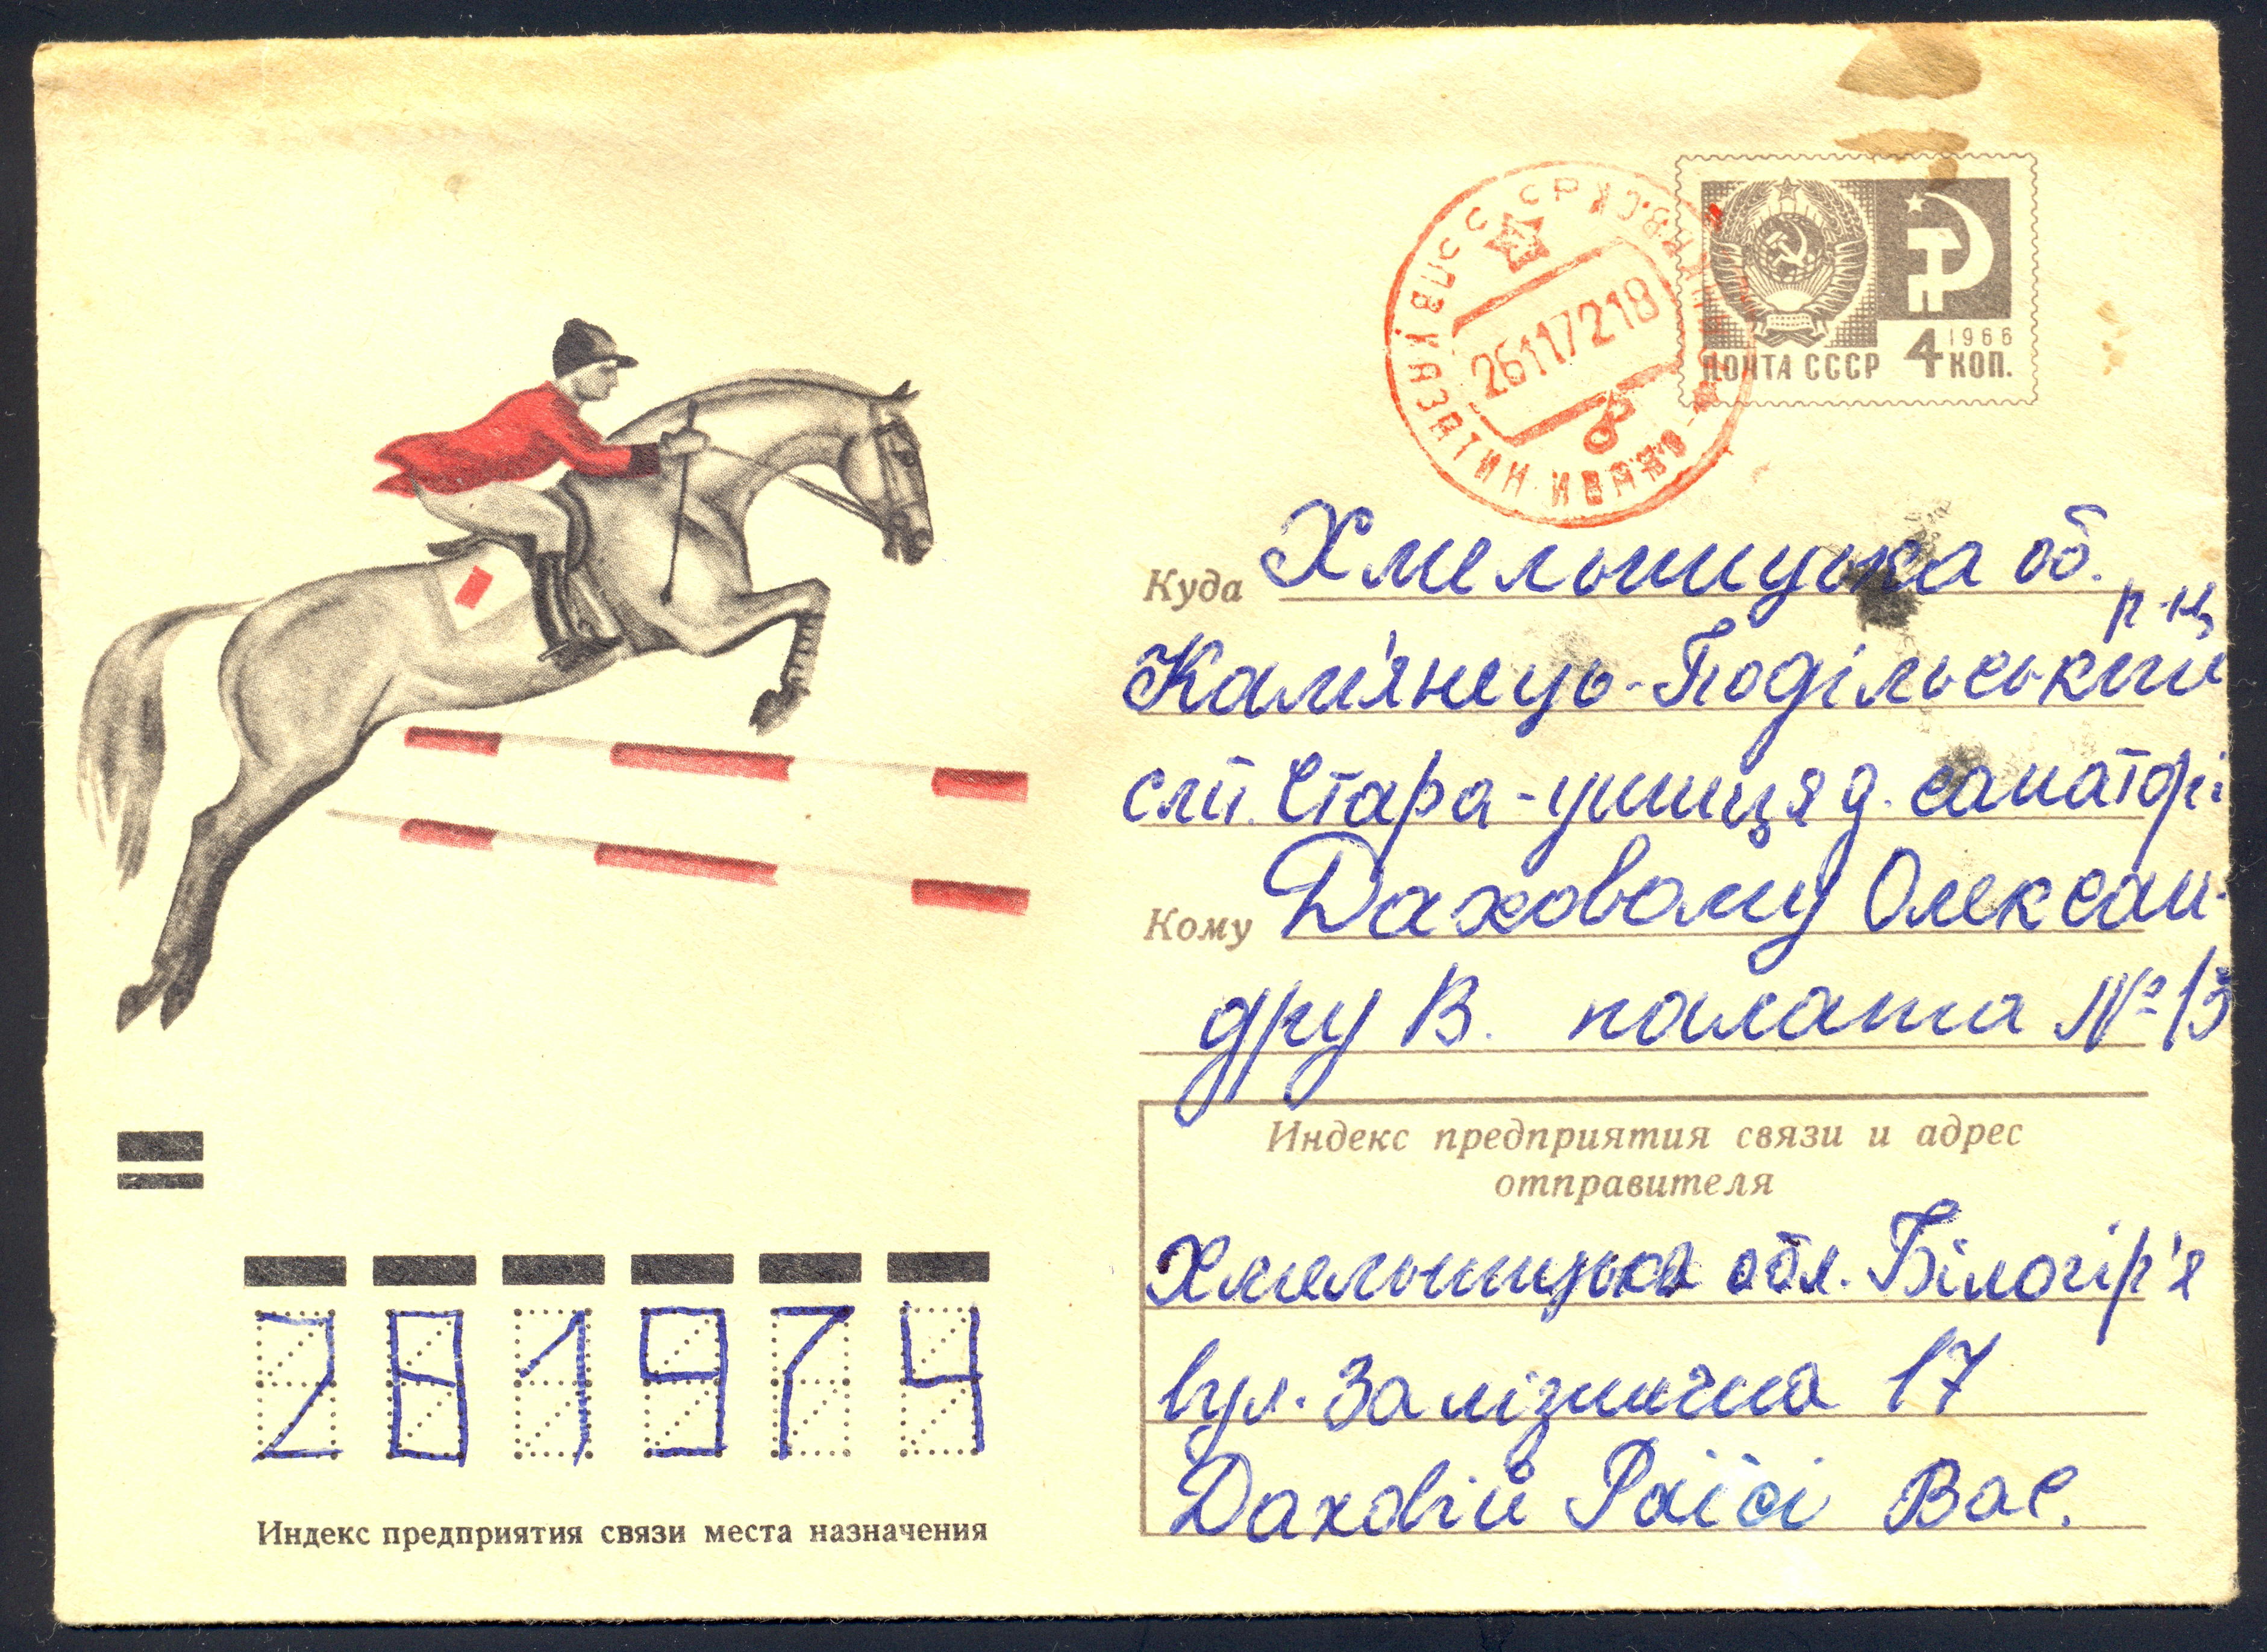 26 11 72 18
ПОЧТА СССР 4 КОП.
1966
Куда Хмельницька об.
р-н
Кам'янець-Подільський
смт. Стара-ушиця д. санаторі
Кому Даховому Олексан-
дру В. палата № 13
Индекс предприятия связи и адрес
отправителя
Хмельницька обл. Білогір'я
вул. Залізнична 17
Даховій Раїсі Вас.
281974
Индекс предприятия связи места назначения